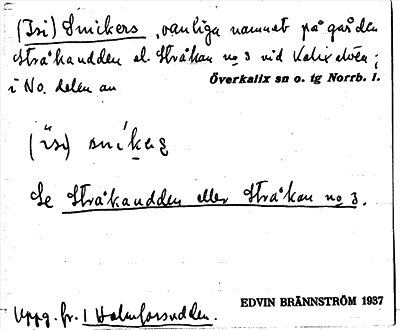 (Isi) Snickers, vanliga namnet på gården
Stråkanudden el. Stråkan no 3 vid Kalix älven;
i No. delen av
Överkalix sn o. tg Norrb. l.
(isi) snikeʂ
Se Stråkanudden eller Stråkan no 3.
EDVIN BRÄNNSTRÖM 1937
Uppg. fr. 1 Holmforsudden.